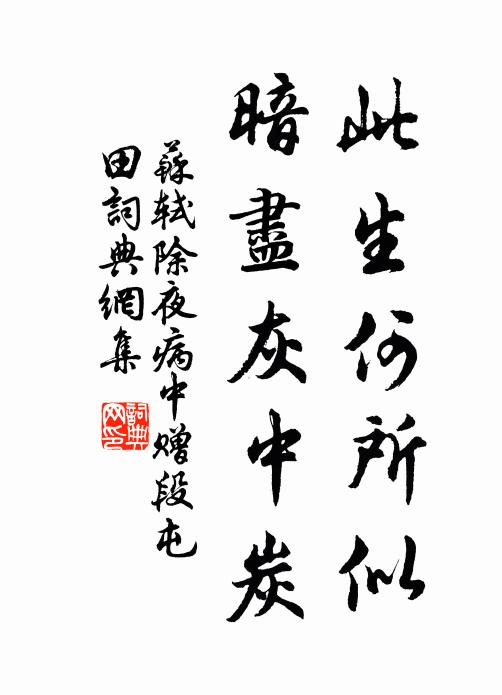 此生何所似
暗盡灰中炭
蘇軾除夜病中贈段屯
田詞典網集
詞典
网印